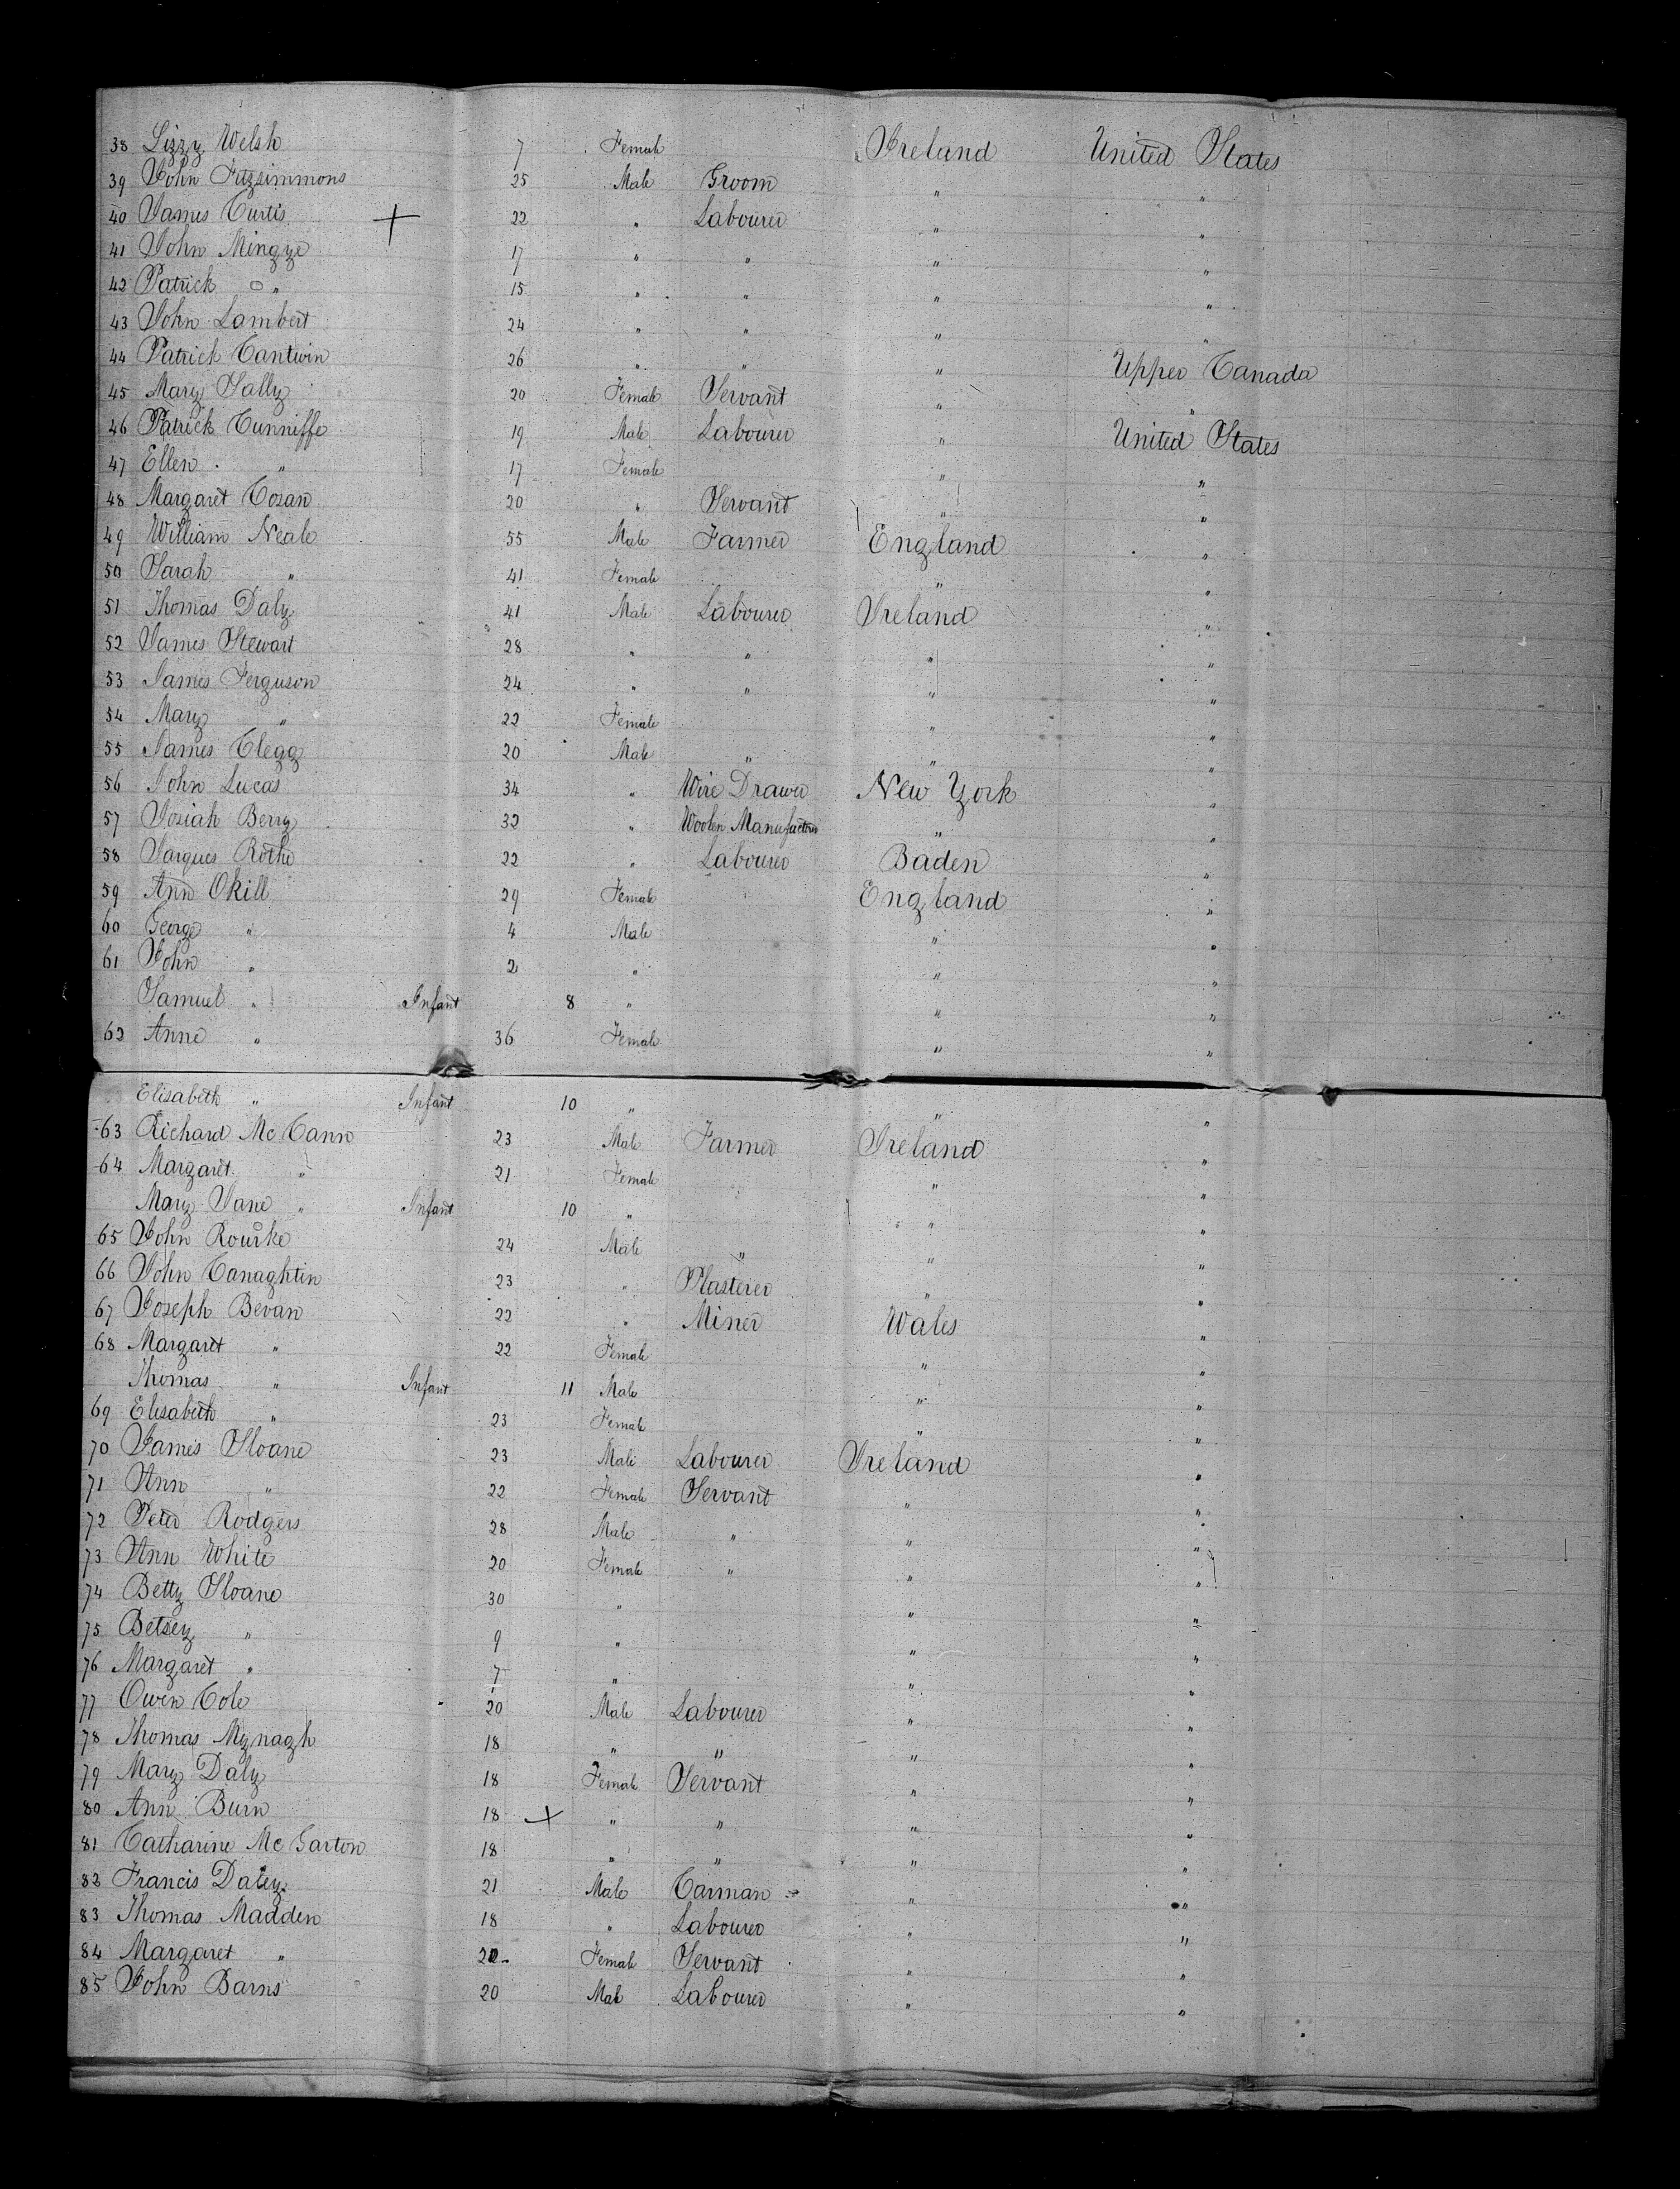 38 Lizzy Welsh 7 Female Ireland United States
39 John Fitzsimmons 25 Male Groom " "
40 James Curtis + 22 " Labourer " "
41 John Mingye 17 " " " "
42 Patrick " 15 " " " "
43 John Lambert 24 " " " "
44 Patrick Cantwin 26 " " " Upper Canada
45 Mary Sally 20 Female Servant " "
46 Patrick Cunniffe 19 Male Labourer " United States
47 Ellen " 17 Female " "
48 Margaret Cosan 20 " Servant " "
49 William Neale 55 Male Farmer England "
50 Sarah " 41 Female " "
51 Thomas Daly 41 Male Labourer Ireland "
52 James Stewart 28 " " " "
53 James Ferguson 24 " " " "
54 Mary " 22 Female " "
55 James Clegg 20 Male " " "
56 John Lucas 34 " Wire Drawer New York "
57 Josiah Berry 32 " Woolen Manufacturer " "
58 Jarques Rothe 22 " Labourer Baden "
59 Ann Okill 29 Female England "
60 George " 4 Male " "
61 John " 2 " " "
Samuel " Infant 8 " " "
62 Anne " 36 Female " "
Elisabeth " Infant 10 " " "
63 Richard Mc Cann 23 Male Farmer Ireland "
64 Margaret " 21 Female " "
Mary Jane " Infant 10 " " "
65 John Rourke 24 Male " " "
66 John Canaghtin 23 " Plasterer " "
67 Joseph Bevan 22 " Miner Wales "
68 Margaret " 22 Female " "
Thomas " Infant 11 Male " "
69 Elisabeth " 23 Female " "
70 James Sloane 23 Male Labourer Ireland "
71 Ann " 22 Female Servant " "
72 Peter Rodgers 28 Male " " "
73 Ann White 20 Female " " "
74 Betty Sloane 30 " " "
75 Betsey " 9 " " "
76 Margaret " 7 " " "
77 Owen Cole 20 Male Labourer " "
78 Thomas Mynagh 18 " " " "
79 Mary Daly 18 Female Servant " "
80 Ann Burn 18 + " " " "
81 Catharine Mc Garton 18 " " " "
82 Francis Daley 21 Male Carman " "
83 Thomas Madden 18 " Labourer " "
84 Margaret " 20 Female Servant " "
85 John Barns 20 Male Labourer " "